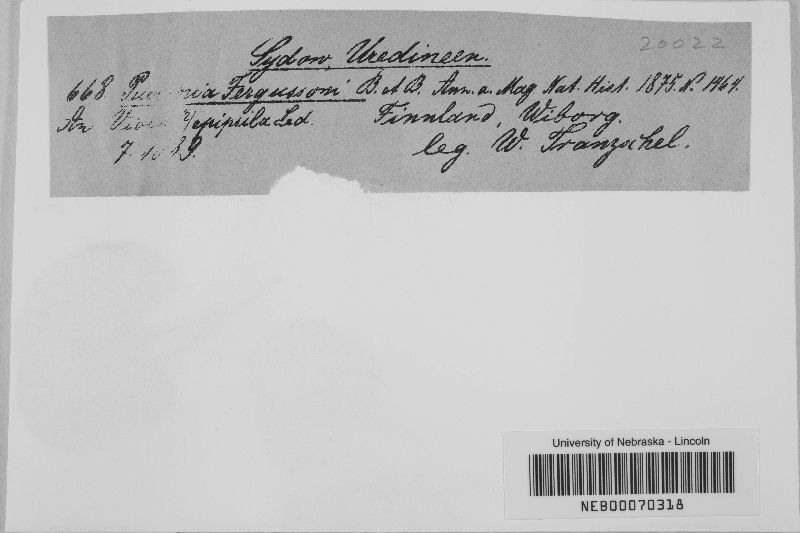 20022
Sydow, Uredineen.
668. Puccinia Fergussoni B. et B. Ann. a. Mag. Nat. Hist. 1875. N. 1464.
An Viola epipsila Led. Finnland, Wiborg.
leg. W. Tranzschel.
University of Nebraska - Lincoln
NEB00070318